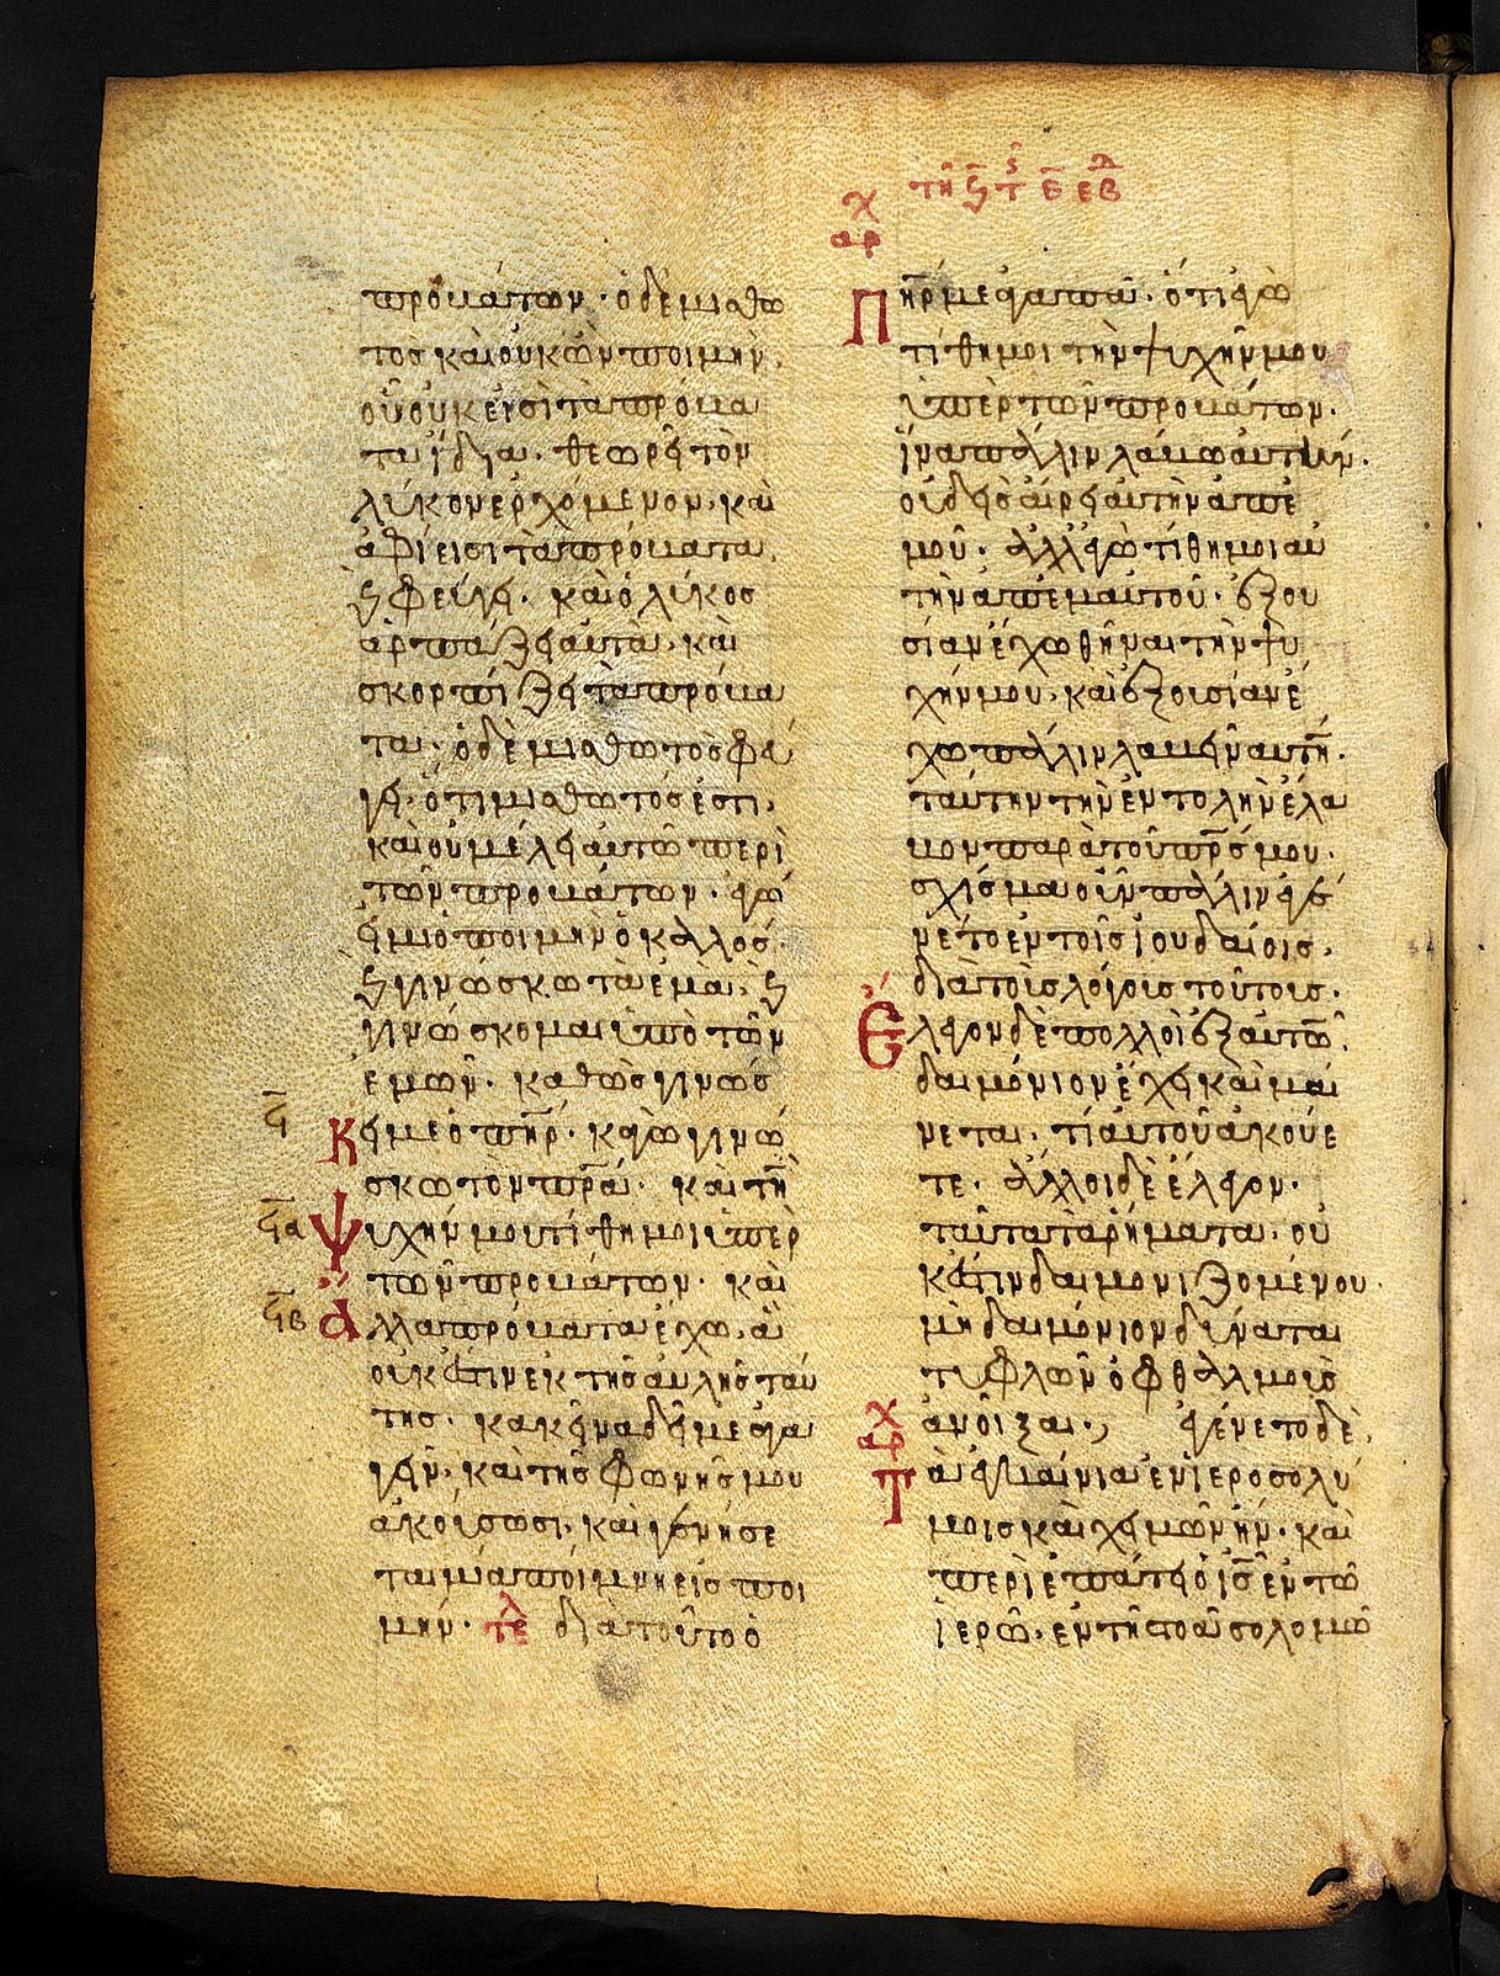 τῆ ϛ τ ε εβδ
χ
αρ
προβάτων· ὁ δὲ μισθω
τὸς καὶ οὐκ ὢν ποιμὴν,
οὗ οὐκ εἰσὶ τὰ πρόβα
τα ἴδια. θεωρεῖ τὸν
λύκον ἐρχόμενον, καὶ
ἀφίεισι τὰ πρόβατα,
ϗ φεύγει. καὶ ὁ λύκος
ἁρπάζει αὐτὰ, καὶ
σκορπίζει τὰ πρόβα
τα· ὁ δὲ μισθωτὸς φεύ
γει, ὅτι μισθωτός ἐστι,
καὶ οὐ μέλει αὐτῶ περὶ
τῶν προβάτων· ἐγώ
εἰμι ὁ ποιμὴν ὁ καλλος·
ϗ γινώσκω τὰ ἐμὰ, ϗ
γινώσκομαι ὑπὸ τῶν
ἐμῶν. καθὼς γινώσ
κει με ὁ πηρ· καγὼ γινώ
σκω τὸν πρα· καὶ τὴν
ψυχήν μου τίθημι ὑπὲρ
τῶν προβάτων· καὶ
ἄλλα πρόβατα ἔχω, ἃ
οὐκ ἔστιν ἐκ τῆς αὐλῆς ταύ
της· κακεῖνα δεῖ με ἀγα
γεῖν, καὶ τῆς φωνῆς μου
ἀκούσωσι, καὶ γενήσε
ται μία ποίμνη εἷς ποι
μήν· τε διὰ τοῦτο ὁ
πηρ με ἀγαπᾶ. ὅτι ἐγὼ
τίθημοι τὴν ψυχήν μου
ὑπὲρ τῶν προβάτων.
ἵνα πάλλιν λάβω αὐτήν.
οὐδεὶς αἴρει αὐτὴν ἀπ' ἐ
μοῦ· ἀλλ' ἐγὼ τίθημοι αὐ
τὴν ἀπ' ἐμαυτοῦ· ἐξου
σίαν ἔχω θῆναι τὴν ψυ
χήν μου, καὶ ἐξουσίαν ἔ
χω πάλλιν λαβεῖν αὐτήν.
ταύτην τὴν ἐντολὴν ἔλα
βον παρὰ τοῦ πρς μου.
σχίσμα οὖν πάλλιν ἐγέ
νετο ἐν τοῖς ἰουδαίοις,
διὰ τοὺς λόγοις τούτοις.
Ἔλεγον δὲ πολλοὶ ἐξ αὐτῶ.
δαιμόνιον ἔχει καὶ μαί
νεται. τί αὐτοῦ ἀκούε
τε. ἄλλοι δὲ ἔλεγον.
ταῦτα τὰ ῥήματα. οὐ
κ ἔστιν δαιμονιζομένου.
μὴ δαιμόνιον δύναται
τυφλῶν ὀφθαλμοὺς
ἀνοίξαι., ἐγένετο δὲ,
χ
αρ
Τὰ ἐγκαίνια ἐν ἱεροσολύ
μοις καὶ χειμῶν ἦν. καὶ
περιεπάτει ὁ ις ἐν τῶ
ἱερῶ, ἐν τῆ στοᾶ σολομῶ